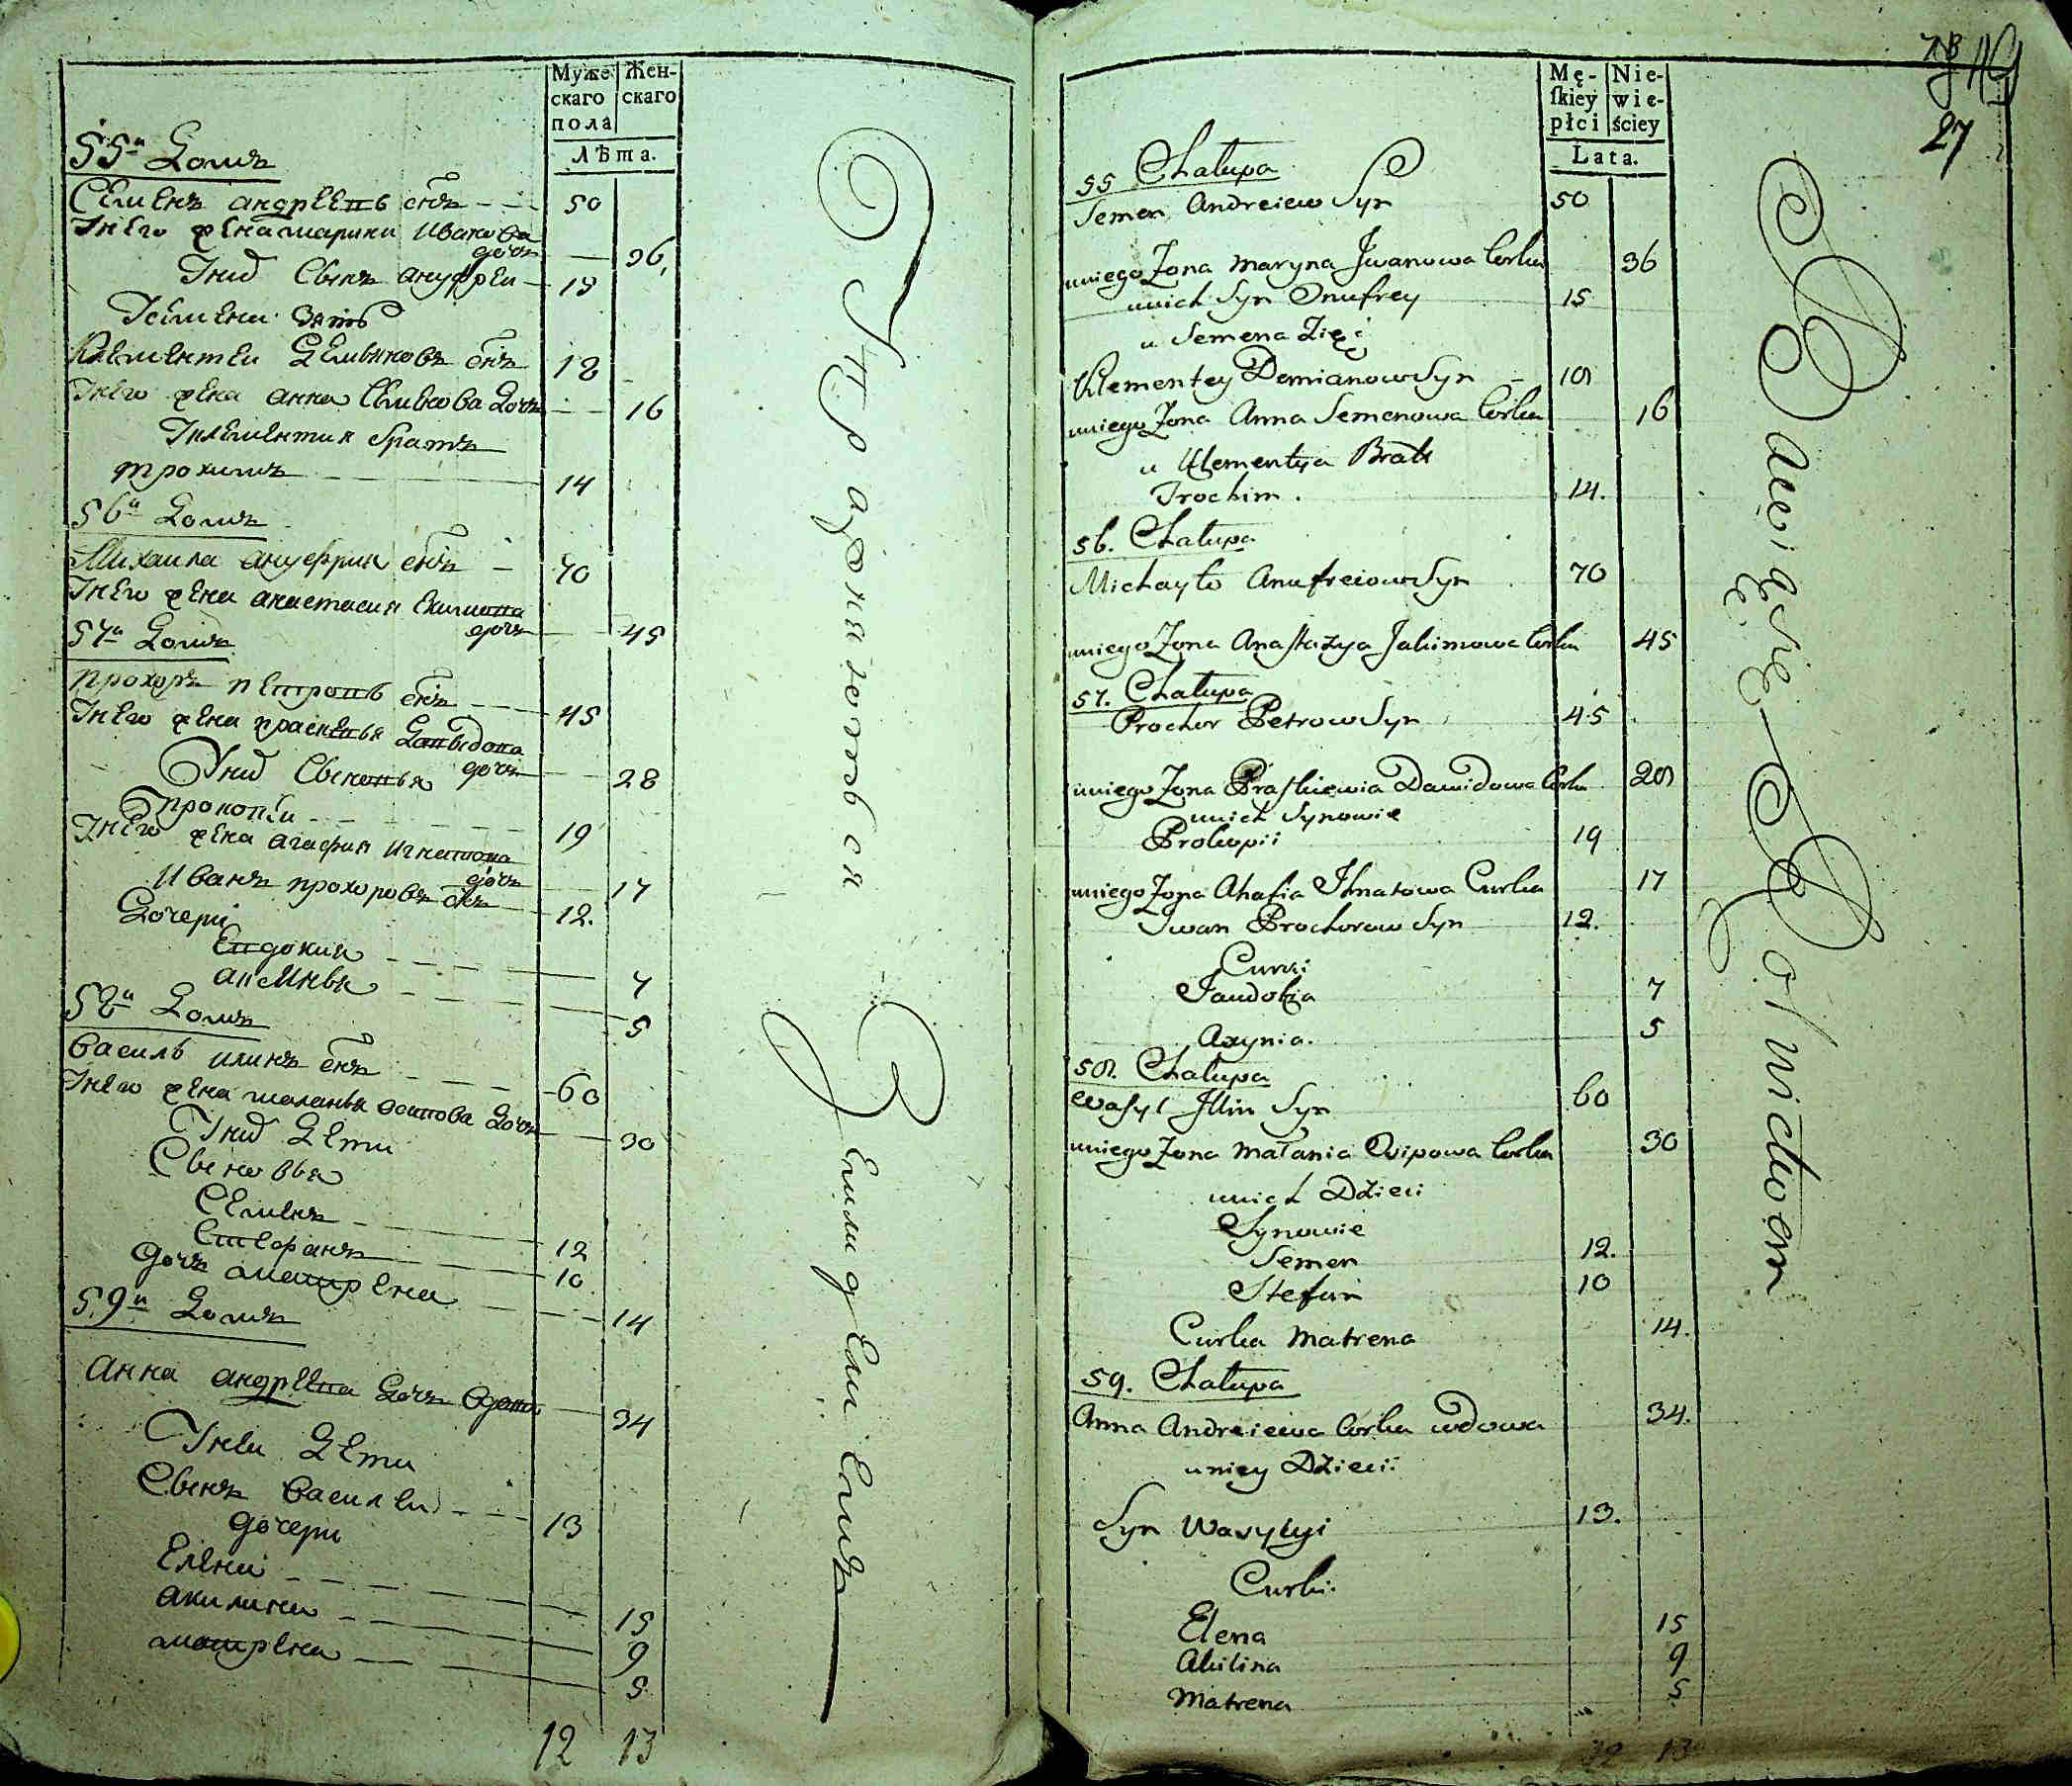 Муже-
скаго
пола
Жен-
скаго
Лѣта.
55й Домъ
Семенъ андреевъ снъ 50
Унего жена марина иванова
дочь 36
Унихъ Сынъ ануфреи 15
Усемена Зять
Клементеи Демьяновъ снъ 18
Унего жена анна Семенова дочь 16
Уклементия братъ
трохимъ 14
56й Домъ
Михаила ануфрия снъ 70
Унего жена анастасия екимова
дочь 45
57й Домъ
прохоръ петровъ снъ 45
Унего жена прасковья Давыдова
дочь 28
Унихъ Сыновья
прокопеи 19
Унего жена агафия игнатова
дочь 17
Иванъ прохоровъ снъ 12.
Дочери
Евдокия 7
аксинья 5
58й Домъ
Василь илинъ снъ 60
Унего жена маланья осипова дочь 30
Унихъ Дети
Сыновья
Семенъ 12
Стефанъ 10
дочь матрена 14
59й Домъ
Анна андреева дочь вдова 34
Унеи Дети
Сынъ Василеи 13
дочери
Елена 15
акилина 9
матрена 5
12 13
Упражняютъся
Земледелиемъ
Mę-
ſkiey
płci
Nie-
wie-
ściey
Lata.
27
55 Chałupa
Semen Andreiew Syn 50
uniego Zona Maryna Jwanowa Corka 36
unich Syn Onufrey 15
u Semena Zięć
Klementey Demianow Syn 18
uniego Zona Anna Semenowa Corka 16
u Klementya Brat
Trochim. 14.
56. Chałupa
Michayło Anufreiow Syn 70
uniego Zona Anastazya Jakimowa Corka 45
57. Chałupa
Prochor Petrow Syn 45
uniego Zona Praskiewia Dawidowa Corka 28
unich Synowie
Prokopii 19
uniego Zona Ahafia Ihnatowa Curka 17
Iwan Prochorow Syn 12.
Curki
Jaudokia 7
Axynia. 5
58. Chałupa
Wasyl Illin Syn 60
uniego Zona Małania Osipowa Corka 30
unich Dzieci
Synowie
Semen 12.
Stefan 10
Curka Matrena 14.
59. Chałupa
Anna Andreiewa Corka wdowa 34.
uniey Dzieci:
Syn Wasylyi 13.
Curki.
Elena 15
Akilina 9
Matrena 5
13
Bawią się Rolnictwem